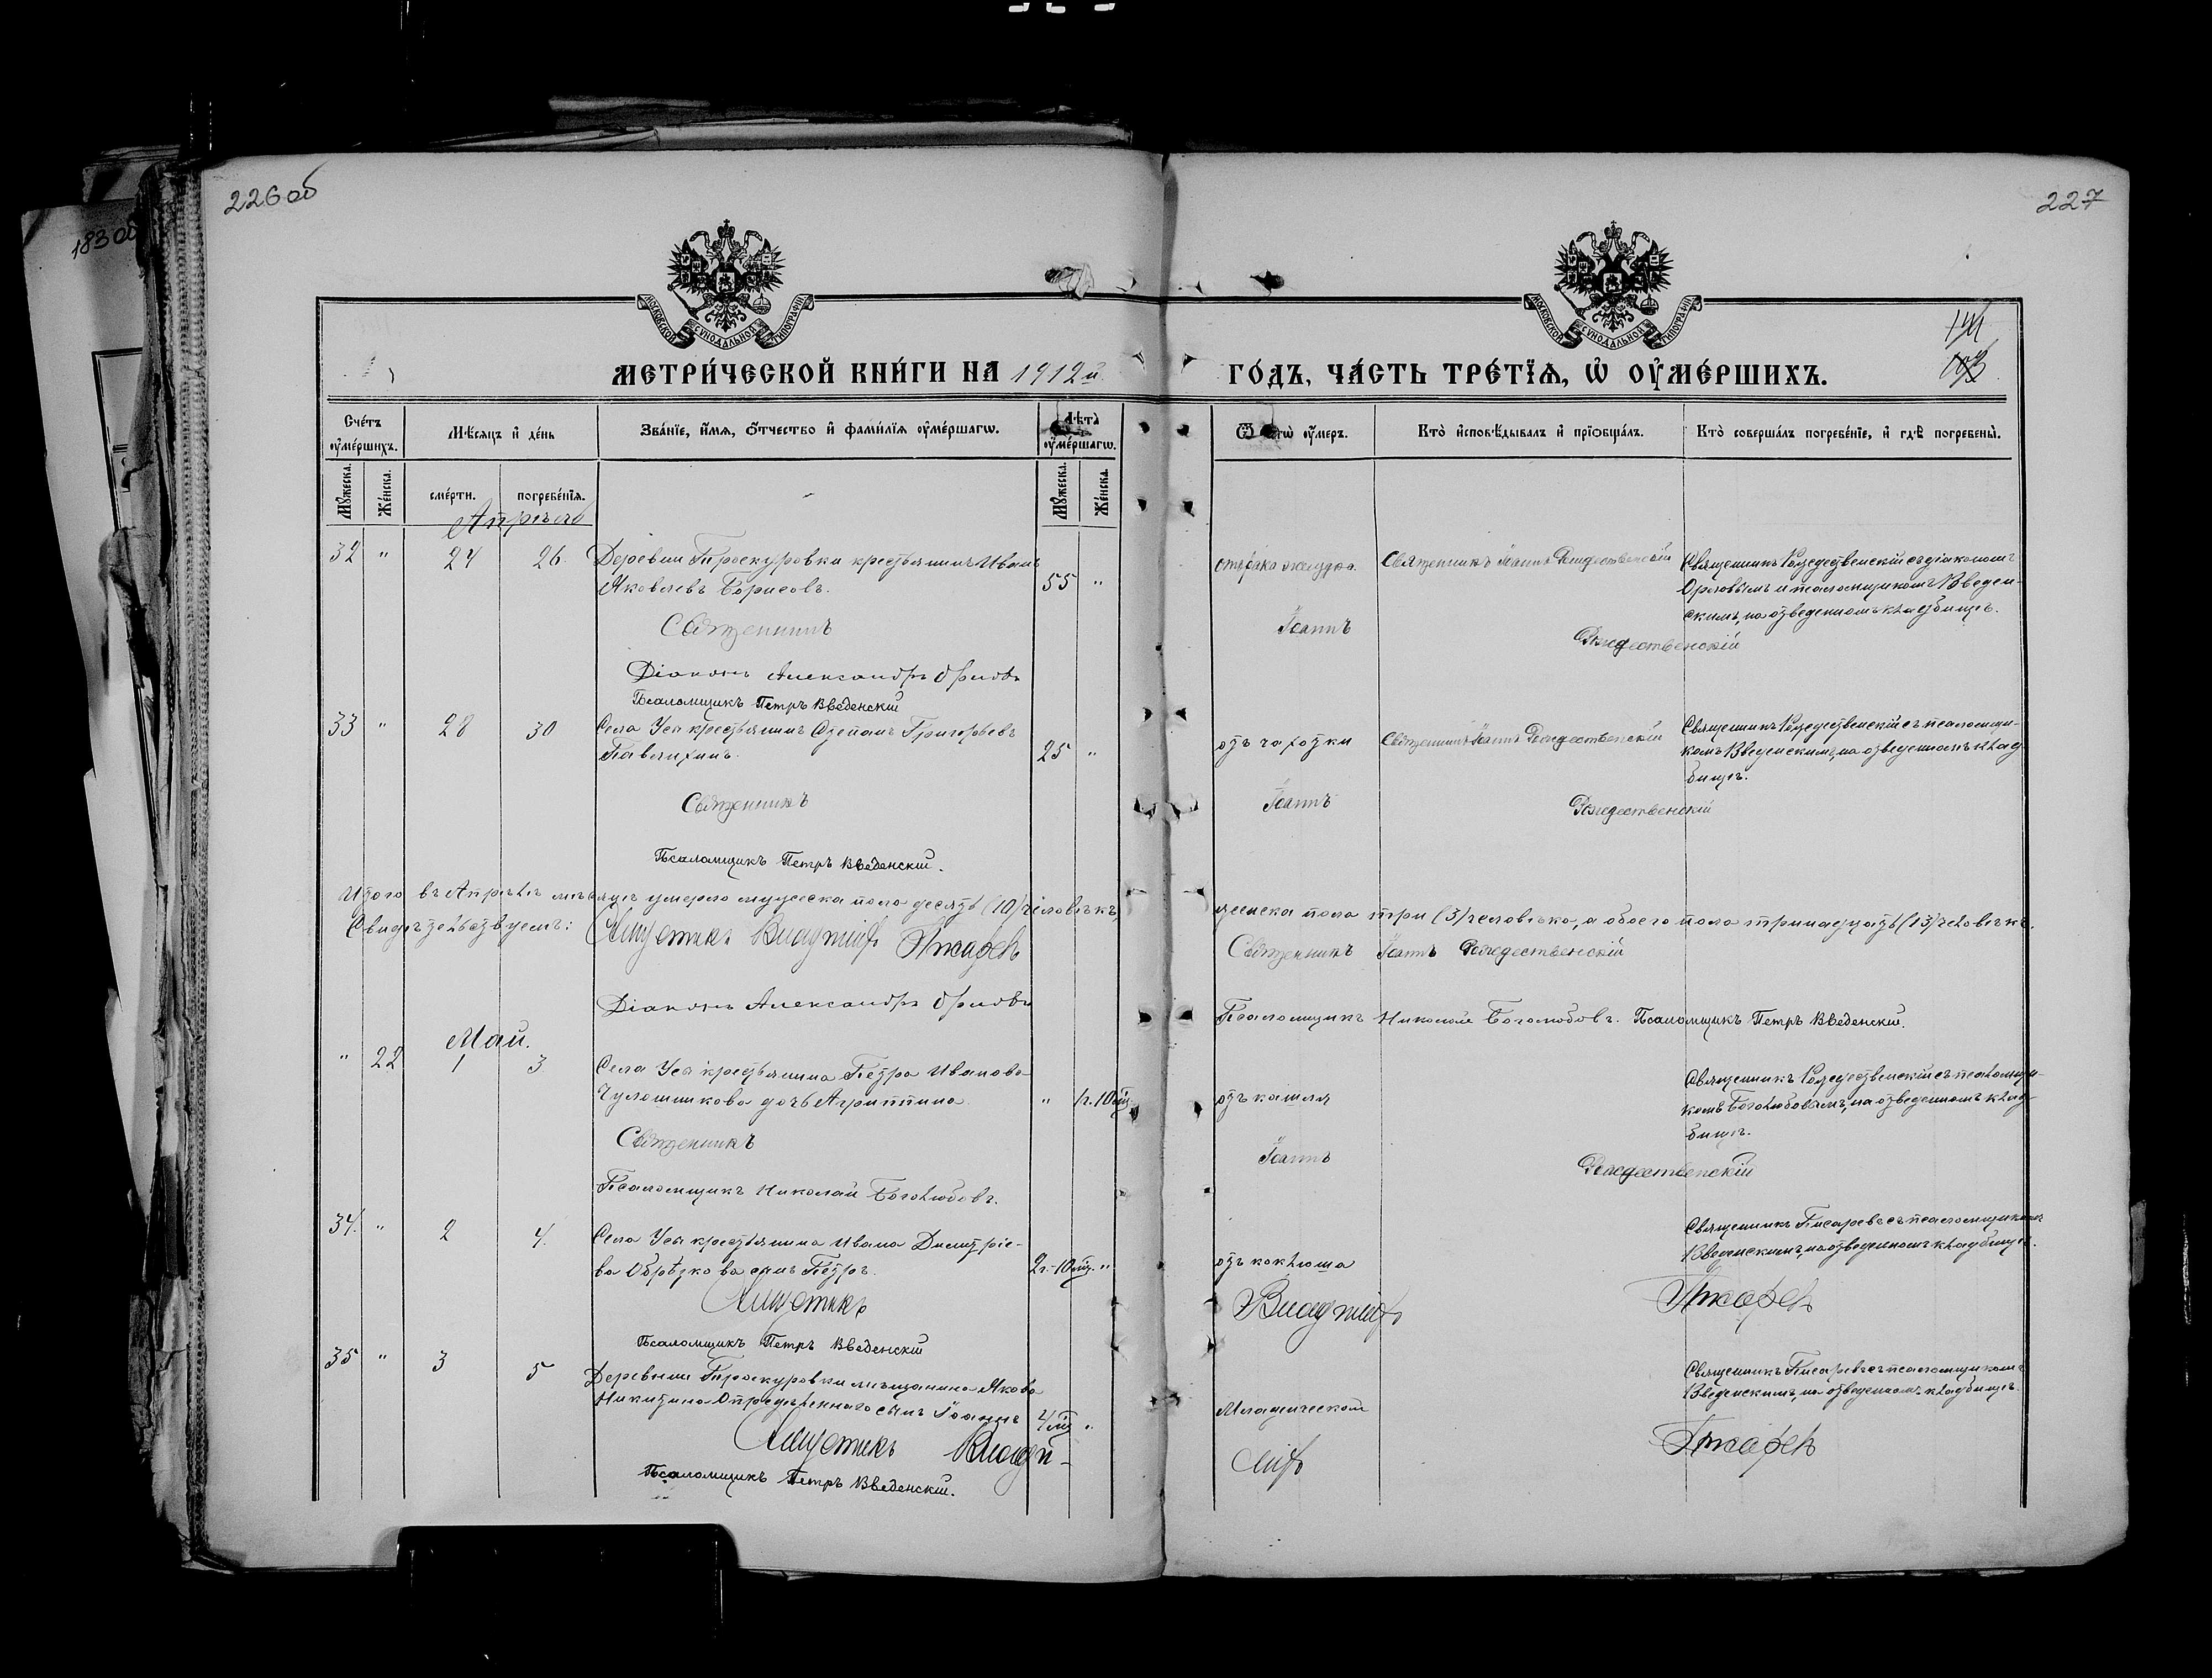 226 об
227
183 об
МОСКОВСКОЙ СѴНОДАЛЬНОЙ ТИПОГРАФІИ
МОСКОВСКОЙ СѴНОДАЛЬНОЙ ТИПОГРАФІИ
МЕТРИ́ЧЕСКОЙ КНИ́ГИ НА 1912 й ГО́ДЪ, ЧА́СТЬ ТРЕ́ТЇѦ, Ѡ҆ ОУ҆МЕ́РШИХЪ.
Сче́тъ оу҆ме́ршихъ.
Мѣ́сяцъ и҆ де́нь
Зва́нїе, и҆́мѧ, ѻ҆́тчество и҆ фами́лїѧ оу҆ме́ршагѡ.
Лѣ́та оу҆ме́ршагѡ.
оу҆́меръ.
Кто̀ и҆сповѣ́дывалъ и҆ прїѡбща́лъ.
Кто̀ соверша́лъ погребе́нїе, и҆ гдѣ̀ погребены̀.
Мꙋ́жеска.
Же́нска.
сме́рти.
погребе́нїѧ.
Мꙋ́жеска.
Же́нска.
Апрѣль
32 " 24 26. Деревни Проскуровки крестьянинъ Иванъ
Яковлевъ Борисовъ. 55 "
отъ рака желудка. Священникъ Іоаннъ Рождественскій
Священникъ Рождественскій съ діакономъ
Орловымъ и псаломщикомъ Введен-
скимъ, на отведенномъ кладбищѣ.
Священникъ Іоаннъ Рождественскій
Діаконъ Александръ Орловъ
Псаломщикъ Петръ Введенскій
33 " 28 30 Села Усы крестьянинъ Степанъ Григорьевъ
25 "
отъ чахотки Священникъ Іоаннъ Рождественскій
Священникъ Рождественскій съ псаломщи-
комъ Введенскимъ, на отведенномъ клад-
бищѣ.
Священникъ Іоаннъ Рождественскій
Псаломщикъ Петръ Введенскій.
Итого въ Апрѣлѣ мѣсяцѣ умерло мужеска пола десять (10) человѣкъ, женска пола три (3) человѣка, а обоего пола тринадцать (13) человѣкъ.
Свидѣтельствуемъ: Священникъ Писаревъ Священникъ Іоаннъ Рождественскій
Діаконъ Александръ Орловъ Псаломщикъ Николай Боголюбовъ. Псаломщикъ Петръ Введенскій.
Май.
" 22 1 3 Села Усы крестьянина Петра Иванова
дочь Агриппина. " 1 г. 10 мц.
отъ кашля
Священникъ Рождественскій съ псаломщи-
комъ Боголюбовымъ, на отведенномъ клад-
бищѣ.
Священникъ Іоаннъ Рождественскій
Псаломщикъ Николай Боголюбовъ.
34. " 2 4. Села Усы крестьянина Ивана Димитріе-
ва Обрѣзкова сынъ Петръ. 2 г.-10 мц. "
отъ коклюша
Священникъ Писаревъ съ псаломщикомъ
Введенскимъ, на отведенномъ кладбищѣ.
Священникъ Писаревъ
Псаломщикъ Петръ Введенскій
35 " 3 5 Деревни Проскуровки мѣщанина Якова
Никитина сынъ Іоаннъ 4 мц "
Младенческой
Священникъ Писаревъ съ псаломщикомъ
Введенскимъ, на отведенномъ кладбищѣ.
Священникъ Писаревъ
Псаломщикъ Петръ Введенскій.